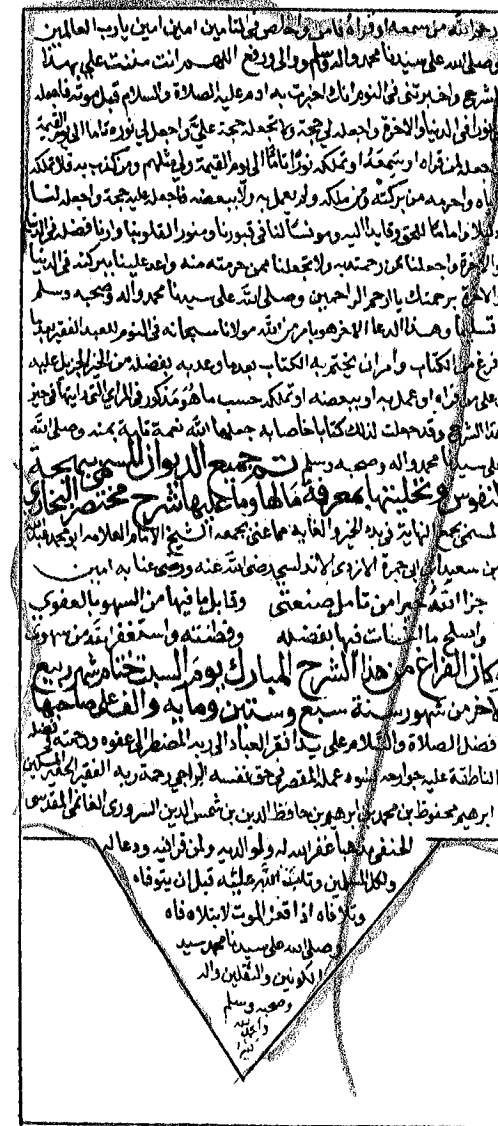 رحم الله من سمعه او قراه فامن واخلص في التامين امين امين يا رب العالمين
وصلى الله على سيدنا محمد واله وسلم ورفع اللهم انت مننت علي بهذا
الشرح واخبرتني في النوم انك اخبرت به ادم عليه الصلاة والسلام قبل موته فاجعله
نورا في الدنيا والاخرة واجعله لي حجة ولا تجعله حجة علي واجعل لي نوره تاما الى يوم القيمة
واجعله لمن قراه او سمعه او تملكه نورا تاما الى يوم القيمة ولي مثلهم ومن كذب به فلا تملكه
اياه واحرمه من بركته ومن ملكه ولم يعمل به ولا ببعضه فاجعله عليه حجة واجعله لنا
دليلا واماما للحق وقايدا اليه ومونسا لنا في قبورنا ومنور القلوبنا وارنا فضله في الدنيا
والاخرة واجعلنا ممن رحمته به ولا تجعلنا ممن حرمته منه واعد علينا بركته في الدنيا
والاخرة برحمتك يا ارحم الراحمين وصلى الله على سيدنا محمد واله وصحبه وسلم
تسليما وهذا الدعا الاخر هو بامر من الله مولانا سبحانه في النوم للعبد الفقير بهذا
فرغ من الكتاب وامر ان يختم به الكتاب بعد ما وعد به بفضله من الخير الجزيل عليه
وعلى من قراه او عمل به او ببعضه او تملكه حسب ما هو مذكور في المراي التي رايتها في حين
هذا الشرح وقد جعلت لذلك كتابا خاصا به جعلها الله نعمة تامة بمنه وصلى الله
على سيدنا محمد واله وصحبه وسلم تم جميع الديوان المسمى ببهجة
النفوس وتحليتها بمعرفة مالها وما عليها شرح مختصر البخاري
المسمى بجمع النهاية في بدء الخير والغاية مما عني بجمعه الشيخ الامام العلامه ابو محمد عبد الله
بن سعيد بن ابي جمرة الازدي الاندلسي رضي الله عنه ورضي عنا به امين
جزا الله خيرا من تامل صنعتي وقابل ما فيها من السهو بالعفو
واصلح ما اخطات فيها بفضله وفطنته واستغفر الله من سهوي
وكان الفراغ من هذا الشرح المبارك يوم السبت ختام شهر ربيع
الاخر من شهور سنة سبع وستين ومايه والف على صاحبها
افضل الصلاة والسلام على يد افقر العباد الى ربه المضطر الى عفوه ورحمته
الناطقة عليه جوارحه بسوء عمله المقصر في حق نفسه الراجي رحمة ربه الفقير الحقير المسكين
ابرهيم محفوظ بن محمد بن ابرهيم بن حافظ الدين بن شمس الدين السروري الغانمي المقدسي
الحنفي مذهبا غفر الله له ولوالديه ولمن قرا فيه ودعا له
ولكل المسلمين وتاب الله عليه قبل ان يتوفاه
وتلافاه اذا قعر الموت لابتلاه فاه
وصلى الله على سيدنا محمد سيد
الكونين والثقلين واله
وصحبه وسلم
والحمد لله